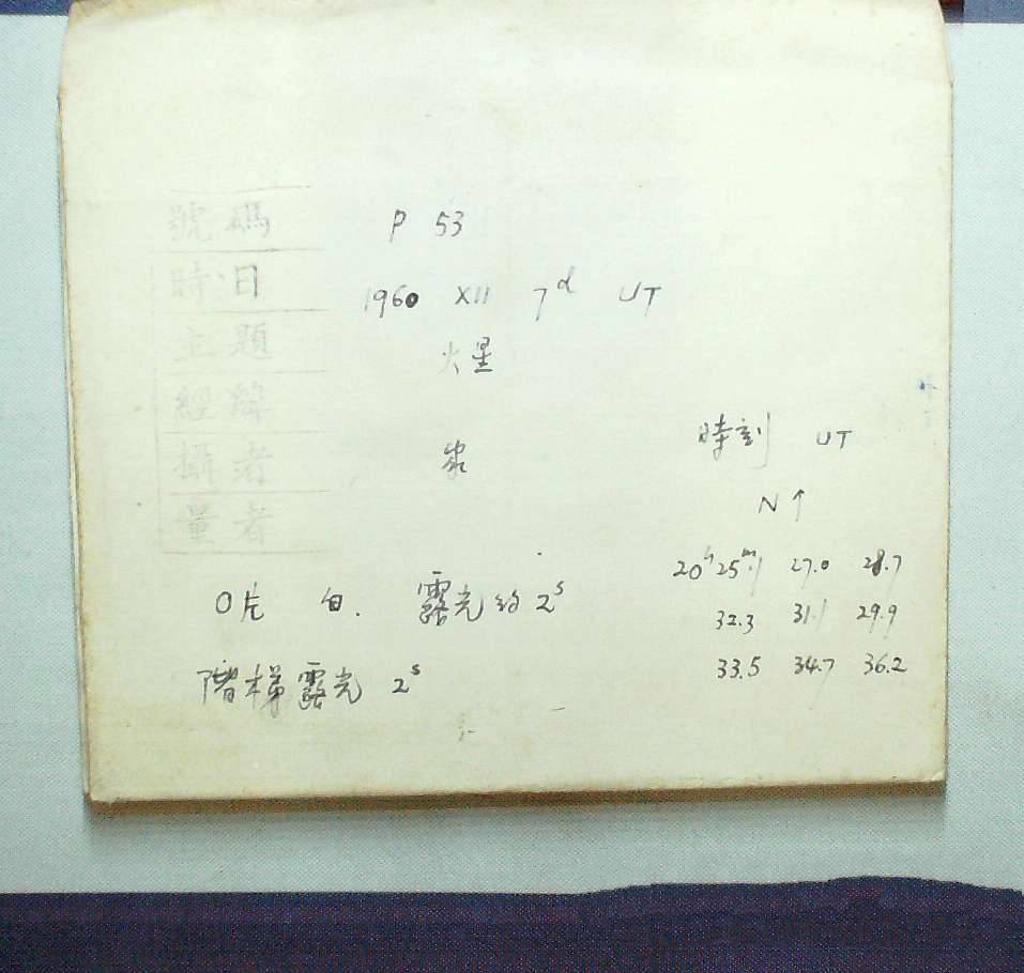 號碼 P 53
時日 1960 XII 7d UT
主題 火星
經緯
攝者
量者
時刻 UT
N↑
20h 25m.1 27.0 28.7
32.3 31.1 29.9
33.5 34.7 36.2
O片 白. 露光约 2s
階梯露光 2s